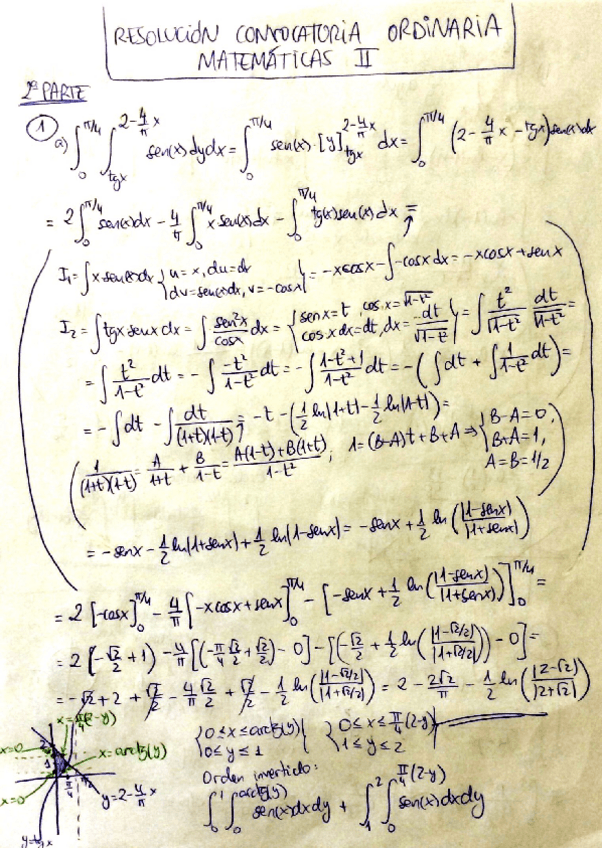 RESOLUCIÓN CONVOCATORIA ORDINARIA
MATEMÁTICAS II
2ª PARTE
① a) ∫₀^{π/4} ∫_{tgx}^{2-4/π x} sen(x) dy dx = ∫₀^{π/4} sen(x)·[y]_{tgx}^{2-4/π x} dx = ∫₀^{π/4} (2 - 4/π x - tgx) sen(x) dx
= 2∫₀^{π/4} sen(x) dx - 4/π ∫₀^{π/4} x sen(x) dx - ∫₀^{π/4} tg(x) sen(x) dx =
I₁ = ∫x sen(x) dx {u = x, du = dx
dv = sen(x) dx, v = -cosx} = -xcosx - ∫-cosx dx = -xcosx + senx
I₂ = ∫tgx senx dx = ∫ sen²x/cosx dx = {senx = t, cosx = √(1-t²)
cosx dx = dt, dx = dt/√(1-t²)} = ∫ t²/√(1-t²) dt/√(1-t²) =
= ∫ t²/(1-t²) dt = -∫ -t²/(1-t²) dt = -∫ (1-t²+1)/(1-t²) dt = -(∫dt + ∫ 1/(1-t²) dt) =
= -∫dt - ∫ dt/((1+t)(1-t)) = -t - (1/2 ln|1+t| - 1/2 ln|1-t|) =
(1/((1+t)(1-t)) = A/(1+t) + B/(1-t) = (A(1-t)+B(1+t))/(1-t²); 1 = (B-A)t + B+A ⇒ {B-A = 0,
B+A = 1,
A = B = 1/2)
= -senx - 1/2 ln|1+senx| + 1/2 ln|1-senx| = -senx + 1/2 ln(|1-senx|/|1+senx|)
= 2[-cosx]₀^{π/4} - 4/π [-xcosx + senx]₀^{π/4} - [-senx + 1/2 ln(|1-senx|/|1+senx|)]₀^{π/4} =
= 2[-√2/2 + 1] - 4/π [(-π/4 √2/2 + √2/2) - 0] - [(-√2/2 + 1/2 ln(|1-√2/2|/|1+√2/2|)) - 0] =
= -√2 + 2 + √2/2 - 4/π √2/2 + √2/2 - 1/2 ln(|1-√2/2|/|1+√2/2|) = 2 - 2√2/π - 1/2 ln(|2-√2|/|2+√2|)
x = π/4(2-y)
x=0
x = arctg(y)
x=0
y = 2 - 4/π x
y = tgx
{0 ≤ x ≤ arctg(y)
0 ≤ y ≤ 1} {0 ≤ x ≤ π/4(2-y)
1 ≤ y ≤ 2}
Orden invertido:
∫₀¹ ∫₀^{arctg(y)} sen(x) dx dy + ∫₁² ∫₀^{π/4(2-y)} sen(x) dx dy